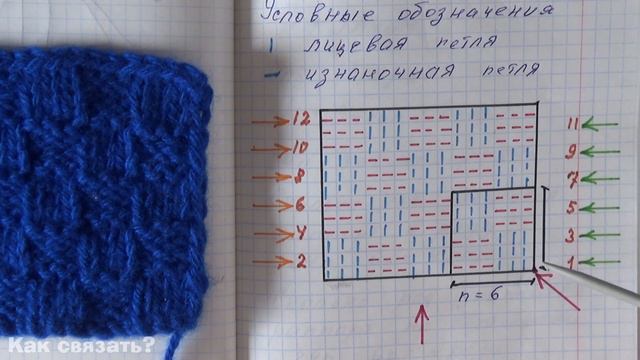 Условные обозначения
| лицевая петля
– изнаночная петля
12
11
10
9
8
7
6
5
4
3
2
1
n = 6
Как связать?